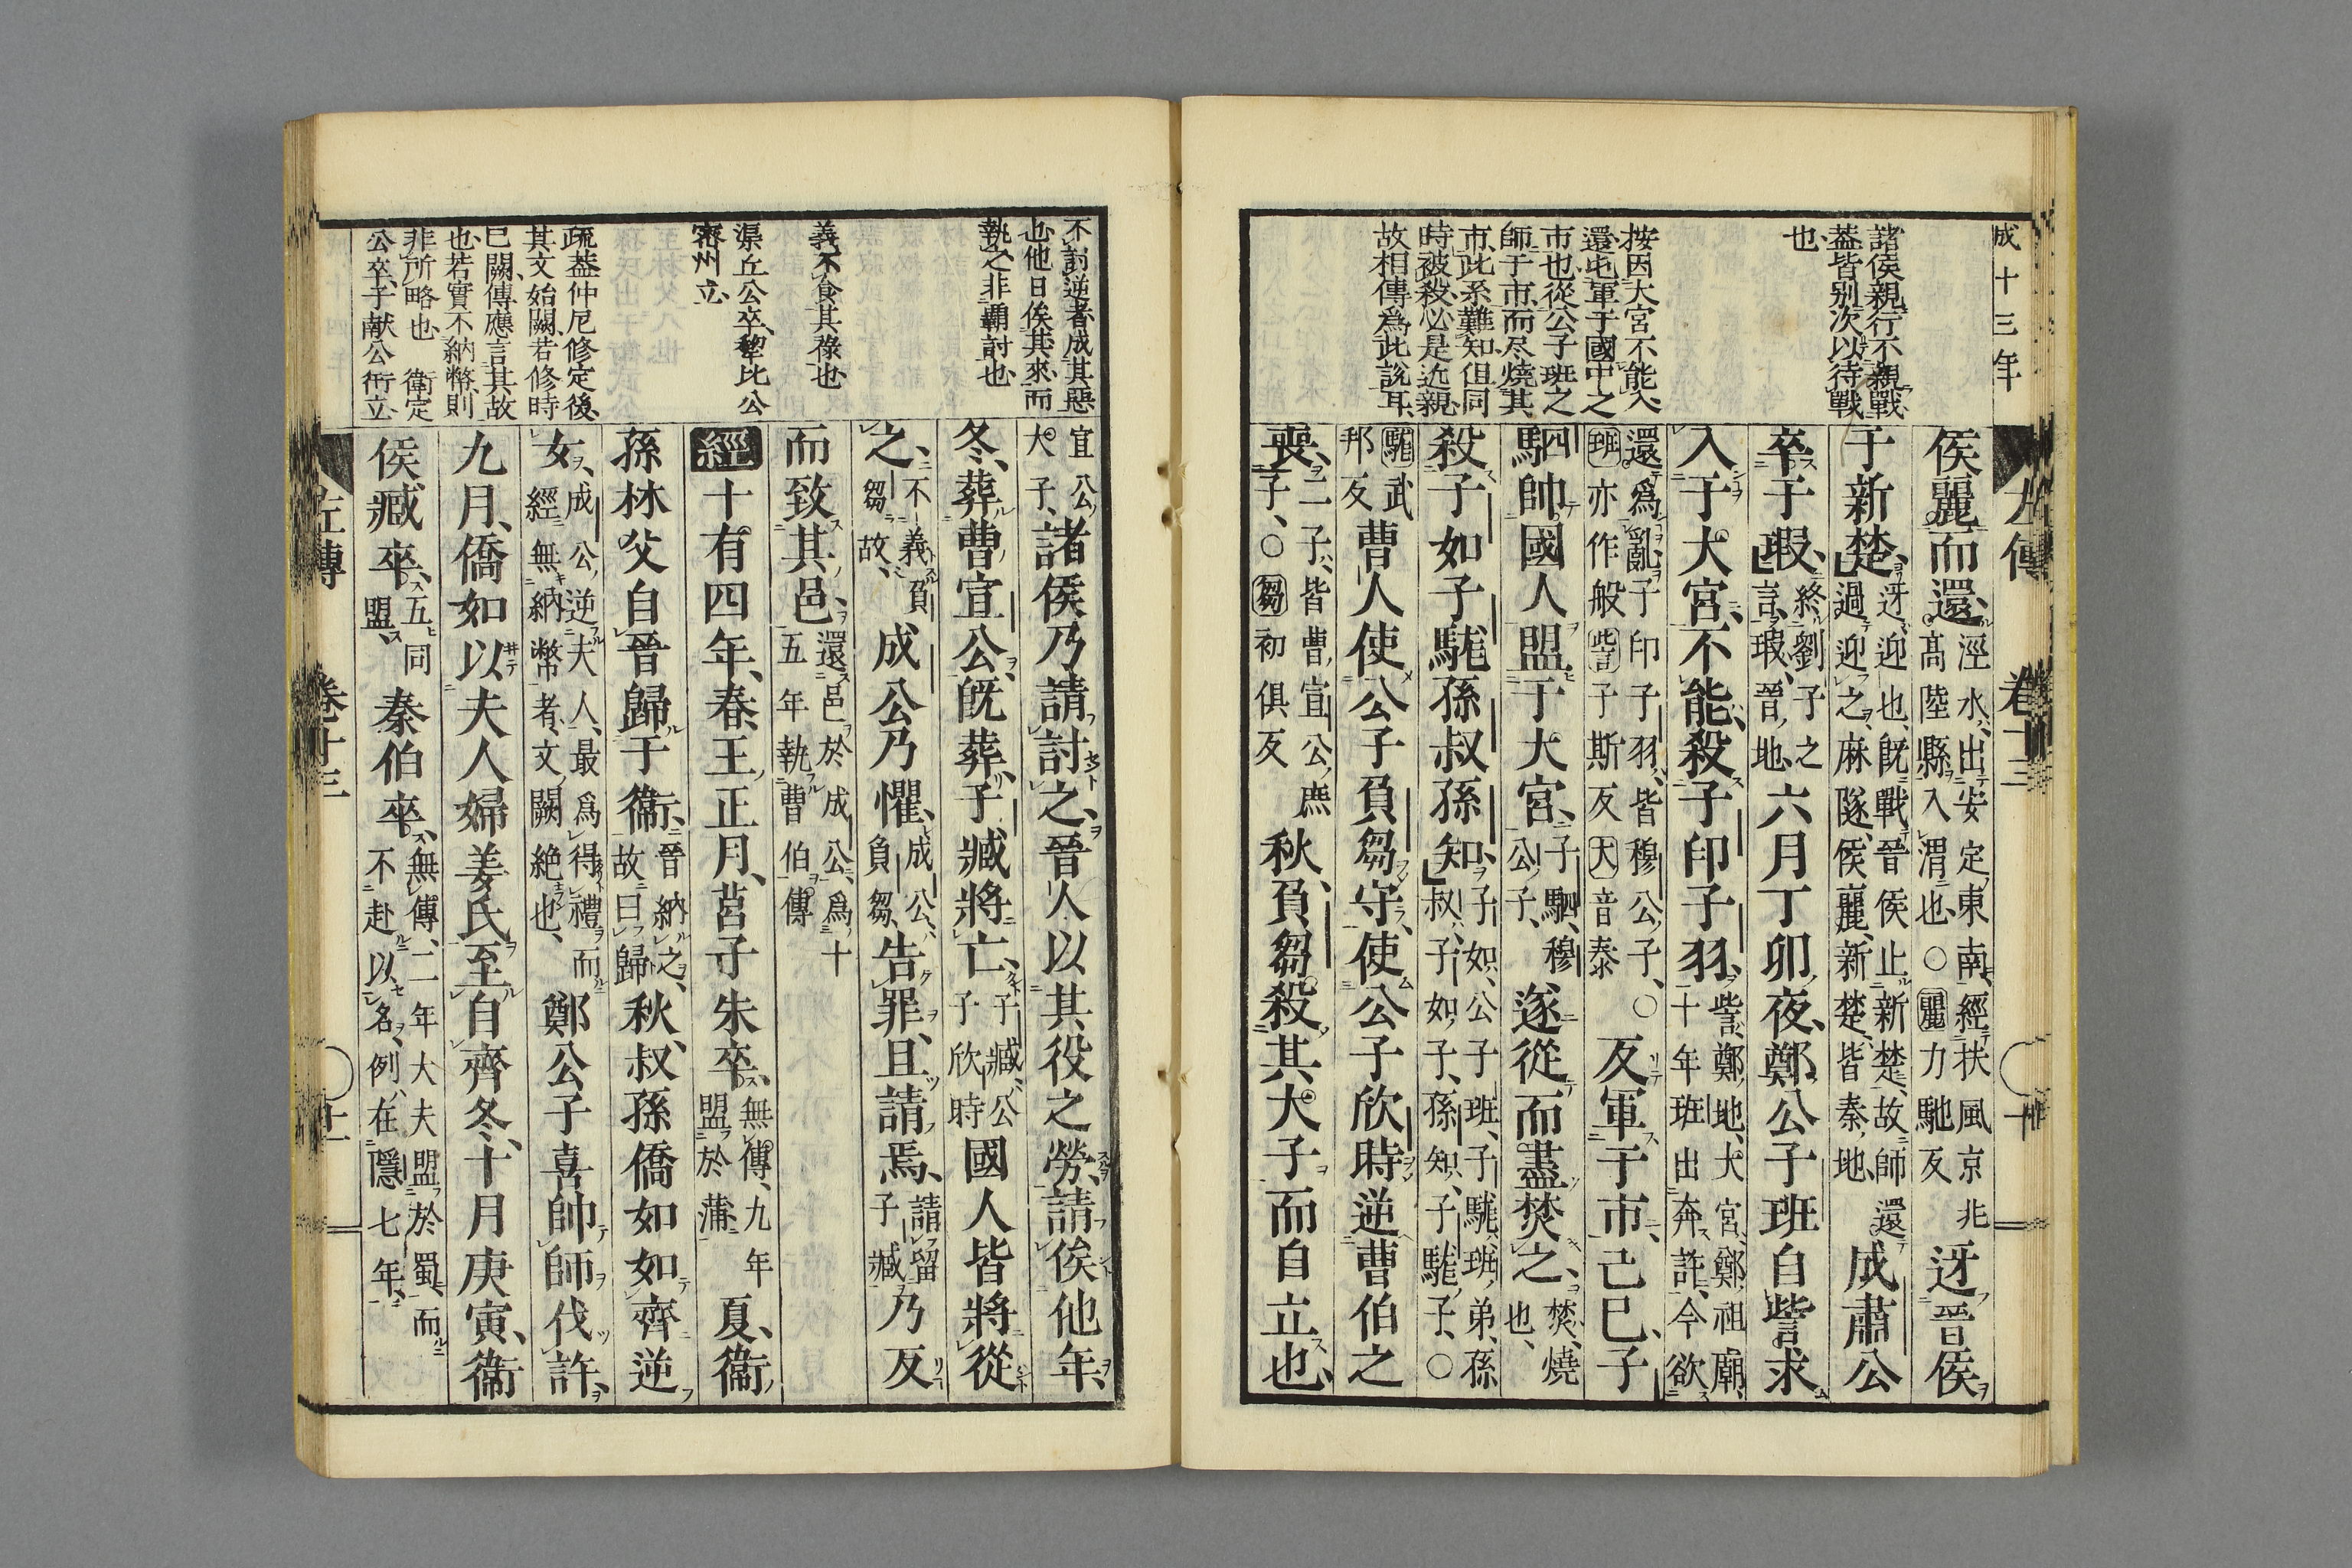 成十三年
諸侯親行不親戰
蓋皆别次以待戰
也
按因大宮不能入
還屯軍于國中之
市也從公子班之
師于市而尽燒其
市此系難知但同
時被殺必是近親
故相傳爲此説耳
左傳 卷十三
侯麗而還涇水出安定東南經扶風京兆高陸縣入渭也○麗力馳反迓晉侯
于新楚迓迎也既戰晉侯止新楚故師還過迎之麻隧侯麗新楚皆秦地成肅公
卒于瑕終劉子之言瑕晉地六月丁卯夜鄭公子班自訾求
入于大宮不能殺子印子羽訾鄭地大宮鄭祖廟十年班出奔許今欲
還爲亂子印子羽皆穆公子○班亦作般訾子斯反大音泰反軍于市己巳子
駟帥國人盟于大宮子駟穆公子遂從而盡焚之焚燒也
殺子如子駹孫叔孫知子如公子班子駹班弟孫叔子如子孫知子駹子○
駹武邦反曹人使公子負芻守使公子欣時逆曹伯之
喪二子皆曹宣公庶子○芻初俱反秋負芻殺其大子而自立也
不討逆者成其惡
也他日俟其來而
執之非霸討也
義不食其祿也
渠丘公卒犂比公
密州立
疏蓋仲尼修定後
其文始闕若修時
已闕傳應言其故
也若實不納幣則
非所略也 衛定
公卒子献公衎立
宣公大子諸侯乃請討之晉人以其役之勞請俟他年
冬葬曹宣公既葬子臧將亡子臧公子欣時國人皆將從
之不義負芻故成公乃懼成公負芻告罪且請焉請留子臧乃反
而致其邑還邑於成公爲十五年執曹伯傳
經十有四年春王正月莒子朱卒無傳九年盟於蒲夏衛
孫林父自晉歸于衛晉納之故曰歸秋叔孫僑如如齊逆
女成公逆夫人最爲得禮而經無納幣者文闕絶也鄭公子喜帥師伐許
九月僑如以夫人婦姜氏至自齊冬十月庚寅衛
侯臧卒五同盟秦伯卒無傳二年大夫盟於蜀而不赴以名例在隱七年
左傳 卷十三 十一